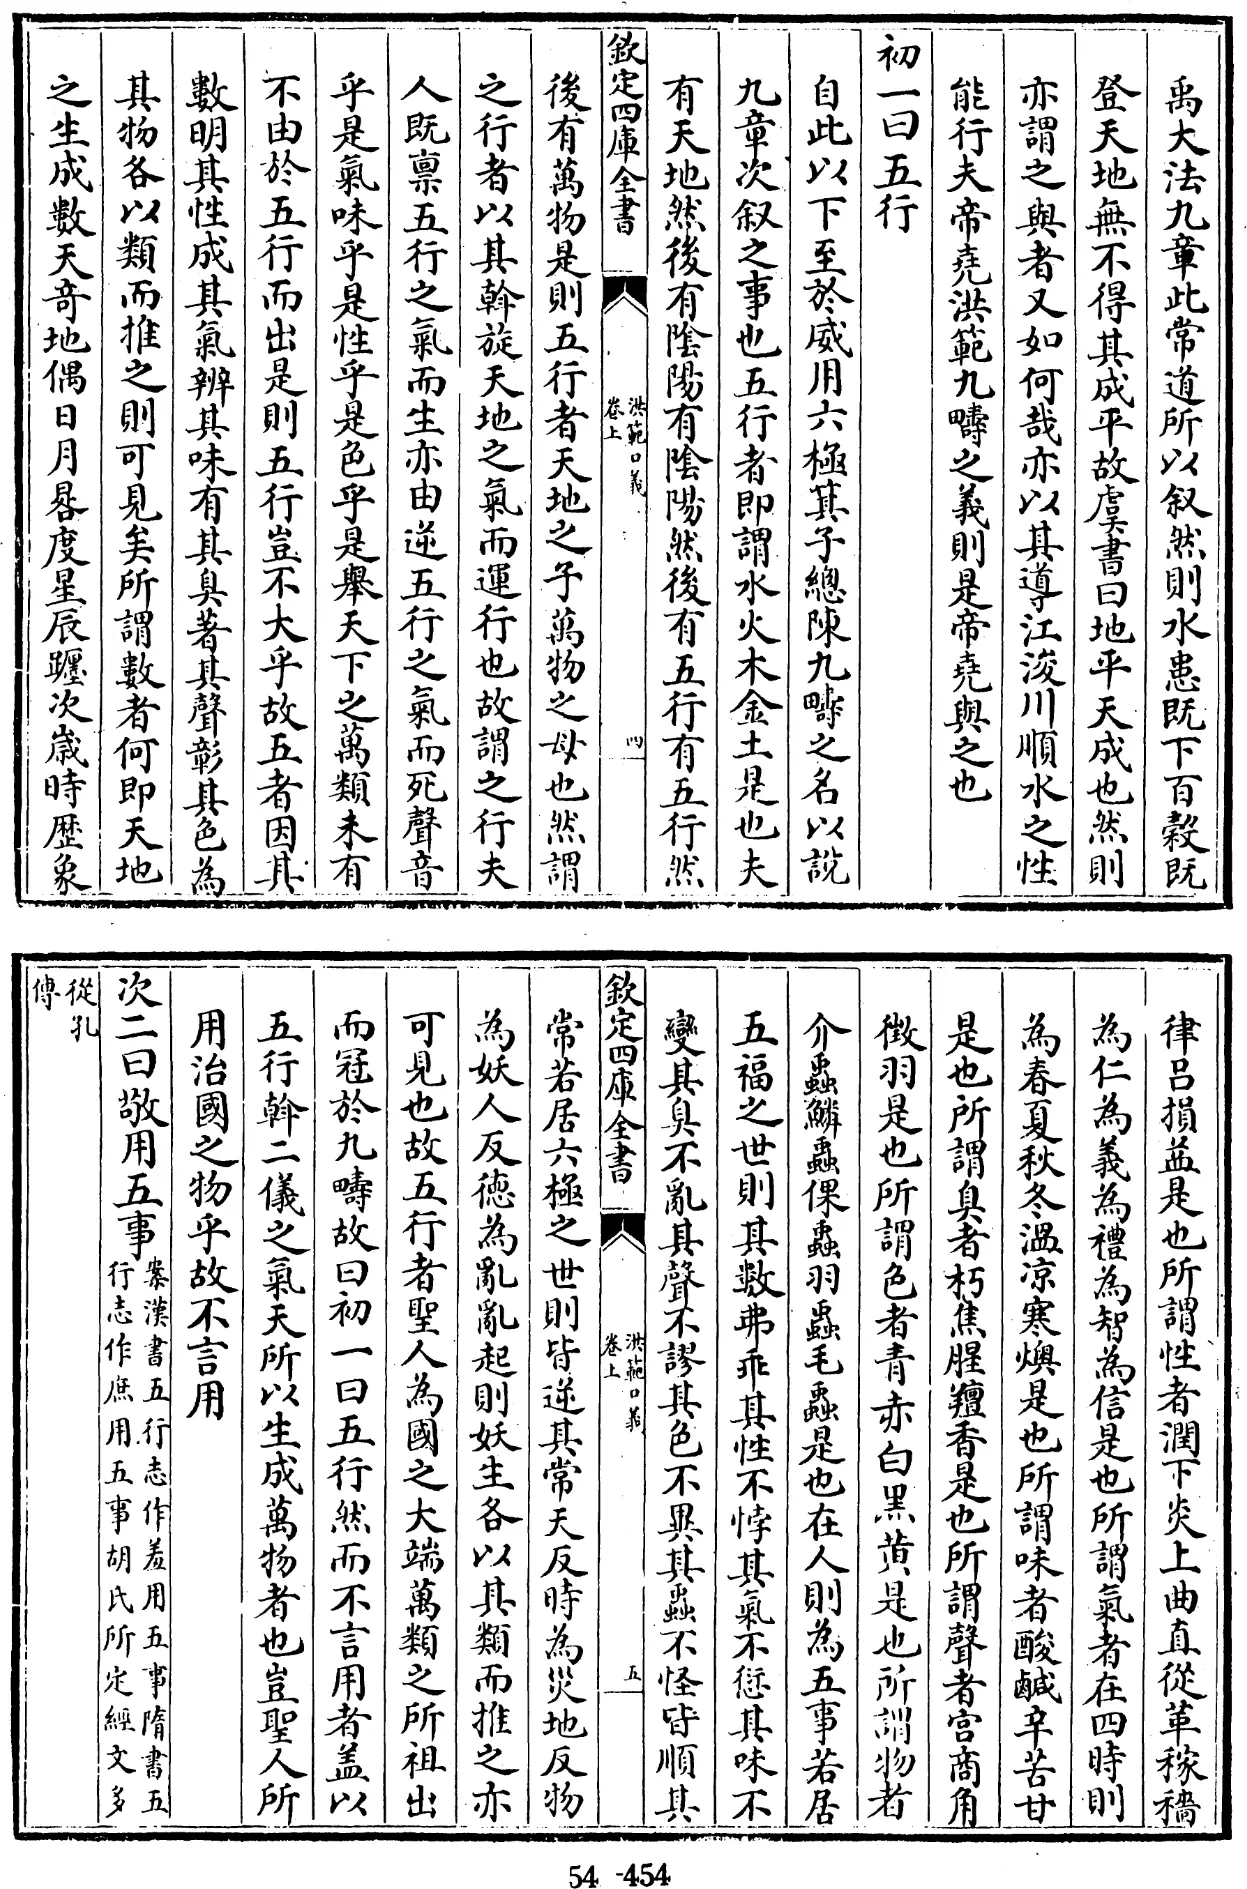 禹大法九章此常道所以叙然則水患既下百穀既
登天地無不得其成平故虞書曰地平天成也然則
亦謂之與者又如何哉亦以其導江浚川順水之性
能行夫帝堯洪範九疇之義則是帝堯與之也
初一曰五行
自此以下至於威用六極箕子總陳九疇之名以說
九章次叙之事也五行者即謂水火木金土是也夫
有天地然後有陰陽有陰陽然後有五行有五行然
欽定四庫全書
洪範口義
卷上
四
後有萬物是則五行者天地之子萬物之母也然謂
之行者以其斡旋天地之氣而運行也故謂之行夫
人既禀五行之氣而生亦由逆五行之氣而死聲音
乎是氣味乎是性乎是色乎是舉天下之萬類未有
不由於五行而出是則五行豈不大乎故五者因其
數明其性成其氣辨其味有其臭著其聲彰其色為
其物各以類而推之則可見矣所謂數者何即天地
之生成數天竒地偶日月晷度星辰躔次歲時歴象
律呂損益是也所謂性者潤下炎上曲直從革稼穡
為仁為義為禮為智為信是也所謂氣者在四時則
為春夏秋冬溫凉寒燠是也所謂味者酸鹹辛苦甘
是也所謂臭者朽焦腥羶香是也所謂聲者宫商角
徴羽是也所謂色者青赤白黒黄是也所謂物者
介蟲鱗蟲倮蟲羽蟲毛蟲是也在人則為五事若居
五福之世則其數弗乖其性不悖其氣不愆其味不
變其臭不亂其聲不謬其色不異其蟲不怪皆順其
欽定四庫全書
洪範口義
卷上
五
常若居六極之世則皆逆其常天反時為災地反物
為妖人反徳為亂亂起則妖生各以其類而推之亦
可見也故五行者聖人為國之大端萬類之所祖出
而冠於九疇故曰初一曰五行然而不言用者盖以
五行斡二儀之氣天所以生成萬物者也豈聖人所
用治國之物乎故不言用
次二曰敬用五事
案漢書五行志作羞用五事隋書五
行志作庶用五事胡氏所定經文多
從孔
傳
54-454